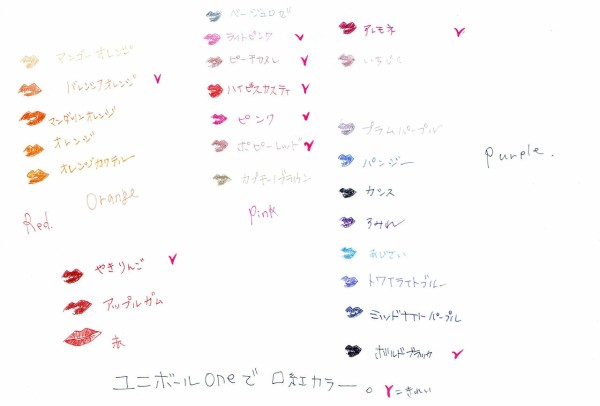 ベージュロゼ
ライトピンク
ピーチサメレ
ハイビスカスティ
ピンク
ポピーレッド
カプチーノブラウン
Pink
マンゴーオレンジ
バレンシアオレンジ
マンダリンオレンジ
オレンジ
オレンジカクテル
Orange
Red.
やきりんご
アップルガム
赤
いちじく
プラムパープル
パンジー
カシス
すみれ
あじさい
トワイライトブルー
ミッドナイトパープル
ボルドブラック
purple.
ユニボールoneで 口紅カラー。
=きれい